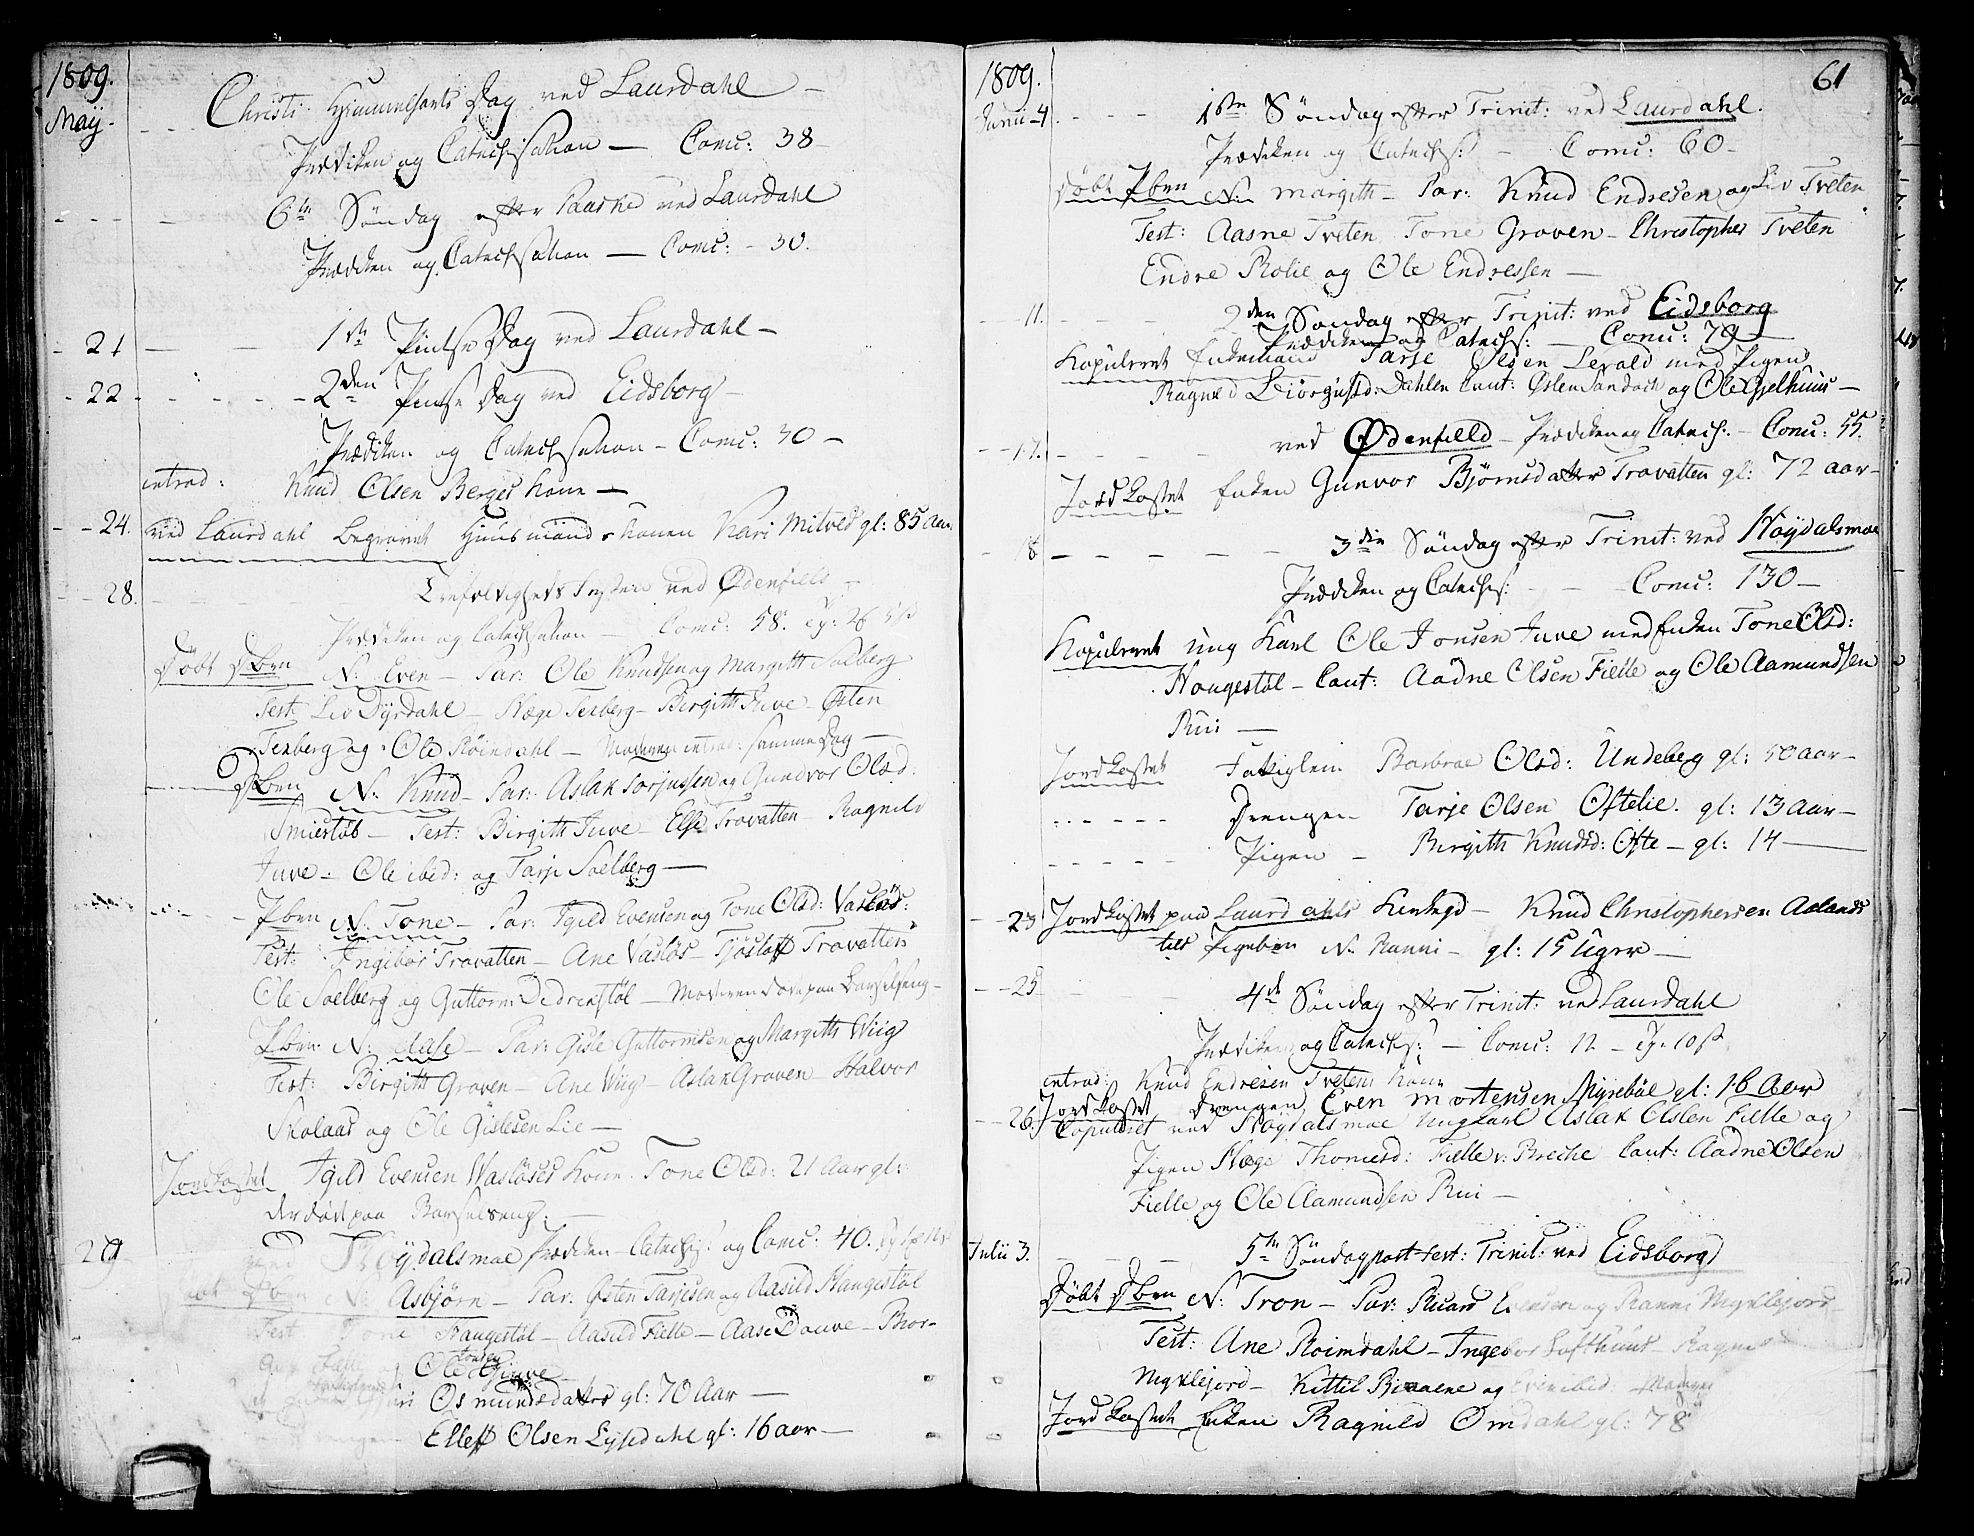 1809.
Maÿ.
Christi Himmelfarts Dag ved Laurdahl –
Prædiken og Catechisation — Comu: 38 –
6te Søndag efter Paaske ved Laurdahl
Prædiken og Catechisation — Comu: – 30.
– 21 — 1ste Pintse Dag ved Laurdahl –
– 22 – – – – – 2den Pintse Dag ved Eidsborg –
Prædiken og Catechisation – Comu: 30 –
introd: Knud Olsen Berges Kone —
– – 24. ved Laurdahl Begravet Huusmands Konen Kari Mitved gl: 85 Aar
– – 28. Trefoldigheds Festen ved Ødenfield –
Prædiken og Catechisation — Comu: 58.
Døbt Dben N: Even – Par: Ole Knudsen og Margith Solberg
Test: Liv Dÿrdahl – Hæge Texberg – Birgith Juve – Østen
Texberg og Ole Röindahl – Moderen introd: samme Dag —
Dben N: Knud – Par: Aslak Torjussen og Gundvor Olsd:
Smiestöl – Test: Birgith Juve – Else Travatten – Ragnild
Juve – Ole ibid: og Tarje Soelberg —
Pben N: Tone – Par: Igild Evensen og Tone Olsd: Vaslös:
Test: Ingebor Travatten – Ane Vaslös – Tjöstoff Travatten
Ole Soelberg og Guttorm Dedrenstöl – Moderen död paa Barselseng –
Pben N: Aase – Par: Gisle Guttormsen og Margith Wiig
Test: Birgith Groven – Ane Wiig – Aslak Groven – Halvor
Skolaas og Ole Gislesen Lie —
Jordkastet Igild Evensen Waslöses Kone Tone Olsd: 21 Aar gl:
der döde paa Barselseng: —
29 ved Höydalsmoe Prædiken – Catechis: og Comu: 40.
Dben N: Asbjørn – Par: Østen Tarjesen og Aasild Haugestöl
Test Tone Haugestöl – Aasild Fielle – Aase Douve – Bior-
Ole Jonsen Giuve
Osmundsdatter gl: 70 Aar —
Elleff Olsen Lÿsedahl gl: 16 aar —
1809. 61
Junii – 4. – – – 1ste Søndag efter Trinit: ved Laurdahl.
Prædiken og Catechs: – Comu: 60 –
Døbt Pben N: Margith – Par: Knud Endresen og Liv Tveten
Test: Aasne Tveten Tone Groven – Christopher Tveten
Endre Rolie og Ole Endressen —
– – 11. – – – 2den Søndag efter Trinit: ved Eidsborg
Prædiken og Catechs: — Comu: 79 —
Kopuleret Enkemand Tarje Olsen Levald med Pigen
Ragnild Diörgusd: Dahlen Caut: Østen Sandok og Ole Gjelhuus —
– – 17. – – – – ved Ødenfield – Prædiken og Catechs: – Comu: 55.
Jordkastet Enken Gunvor Bjørnsdatter Travatten gl: 72 aar –
– 18 – – – – 3die Søndag efter Trinit: ved Höydalsmoe
Prædiken og Catechis: – – Comu: 130 –
Kopuleret ung Karl Ole Jonsen Juve med Enken Tone Olsd:
Haugestöl – Caut: Aadne Olsen Fielle og Ole Aamundsen
Rui —
Jordkastet Fattiglem Barbroe Olsd: Undeberg gl: 50 aar –
– – – – Drengen Tarje Olsen Oftelie. gl: 13 aar –
– – – – – Pigen – Birgith Knudsd: Ofte – gl: 14 —
– – 23 Jordkastet paa Laurdahls Kirkegd – Knud Christophersen Aalands
Pigebn N: Ranni – gl: 15 Uger —
– – 25 4de Søndag efter Trinit: ved Laurdahl
Prædiken og Catechs: – Comu: 12 –
introd: Knud Endresen Tvetens Kone
Jordkastet Drengen Even Mortensen Myreböe gl: 16 Aar
– – 26. Copuleret ved Höydalsmoe Ungkarl Aslak Olsen Fielle og
Pigen Hæge Thomesd: Fielle v: Breche Caut: Aadne Olsen
Fielle og Ole Aamundsen Rui —
Julii 3. – – – 5te Søndag post fest: Trinit: ved Eidsborg
Døbt Dben N: Tron – Par: Ruard Evensen og Ranni Myklejord –
Test: Ane Roimdahl – Ingebor Lofthuus – Ragne
Myklejord – Kittil Bienaene og Even ibid:
Jordkastet Enken Ragnild Omdahl gl: 78